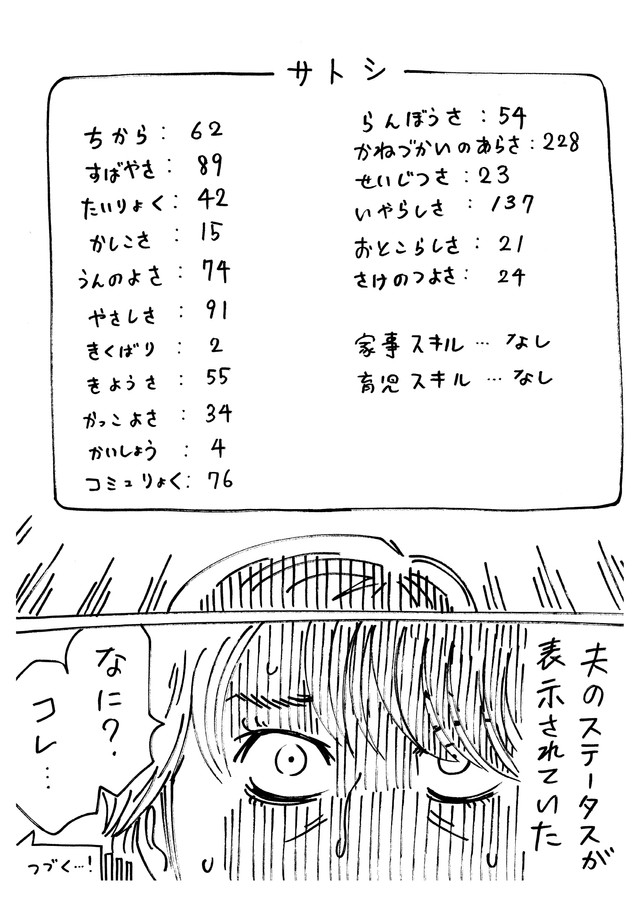 サトシ
ちから: 62
すばやさ: 89
たいりょく: 42
かしこさ: 15
うんのよさ: 74
やさしさ: 91
きくばり: 2
きようさ: 55
かっこよさ: 34
かいしょう: 4
コミュりょく: 76
らんぼうさ: 54
かねづかいのあらさ: 228
せいじつさ: 23
いやらしさ: 137
おとこらしさ: 21
さけのつよさ: 24
家事スキル…なし
育児スキル…なし
夫のステータスが
表示されていた
なに?
コレ…
つづく…!